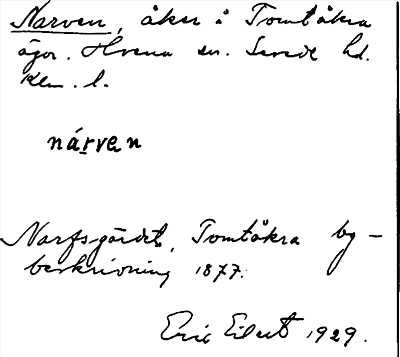 Narven, åker i Tomtåkra
ägor. Hvena sn. Sevede hd.
Klm. l.
nárven
Narfsgärdet, Tomtåkra by-
beskrivning 1877.
Eric Eilert 1929.